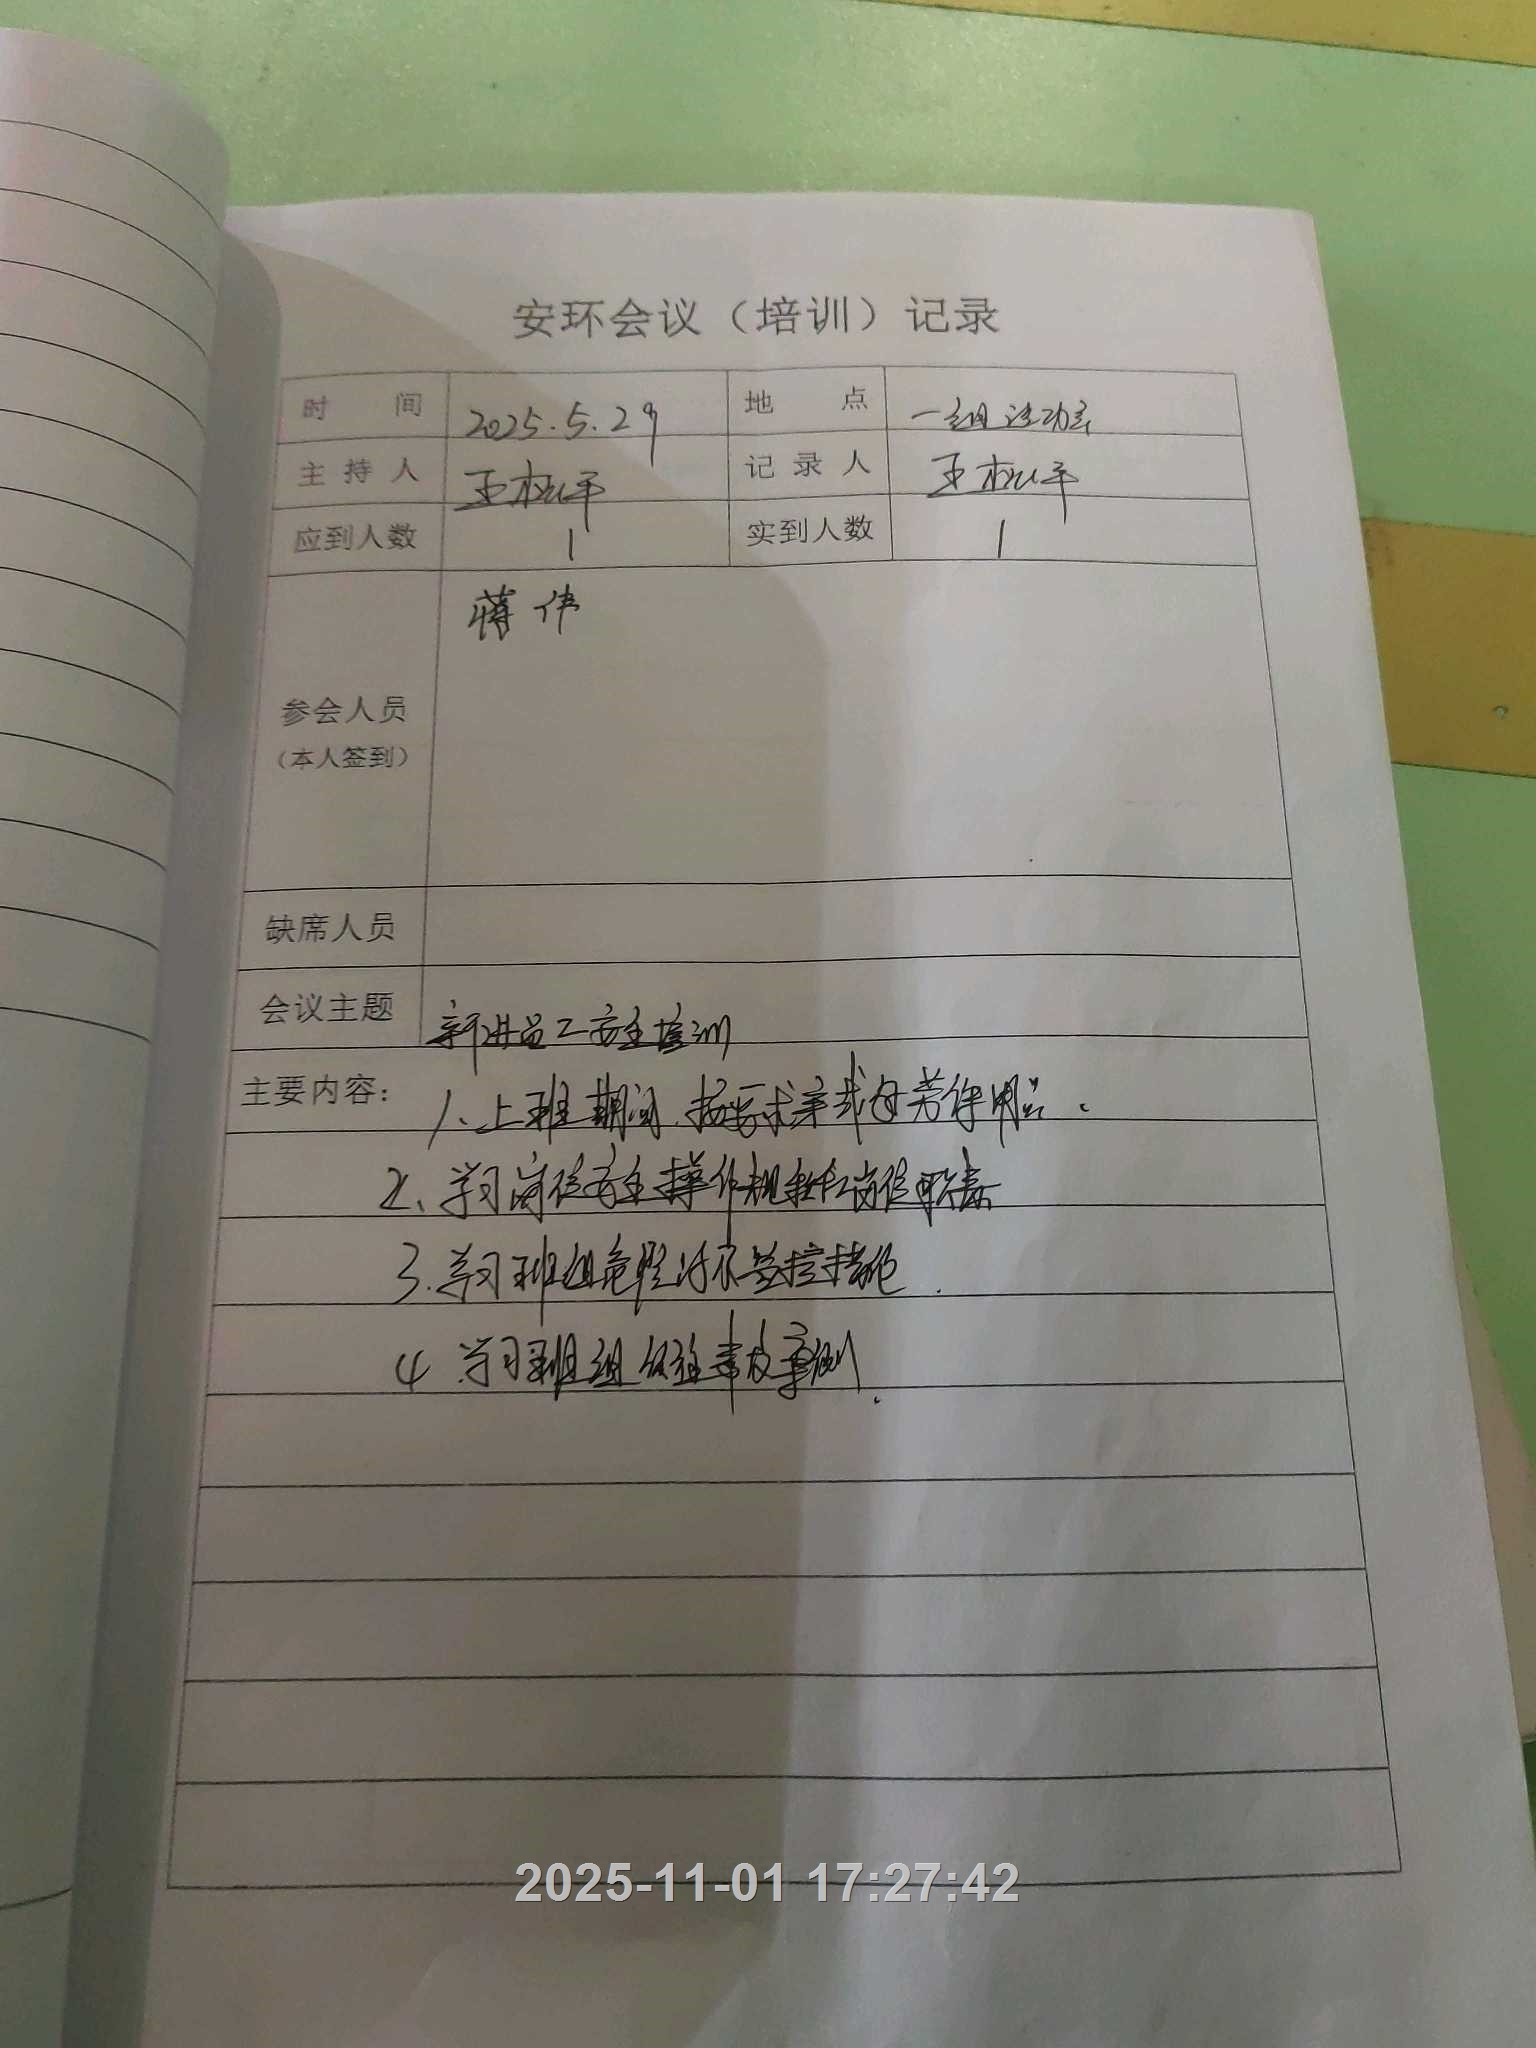 安环会议（培训）记录
时 间 2025.5.29 地 点 一组活动室
主 持 人 王松平 记 录 人 王松平
应到人数 1 实到人数 1
蒋伟
参会人员
（本人签到）
缺席人员
会议主题 新进员工安全培训
主要内容： 1、上班期间，按要求穿戴好劳保用品.
2、学习岗位安全操作规程和岗位职责
3.学习班组危险源及管控措施.
4 学习班组以往事故案例.
2025-11-01 17:27:42